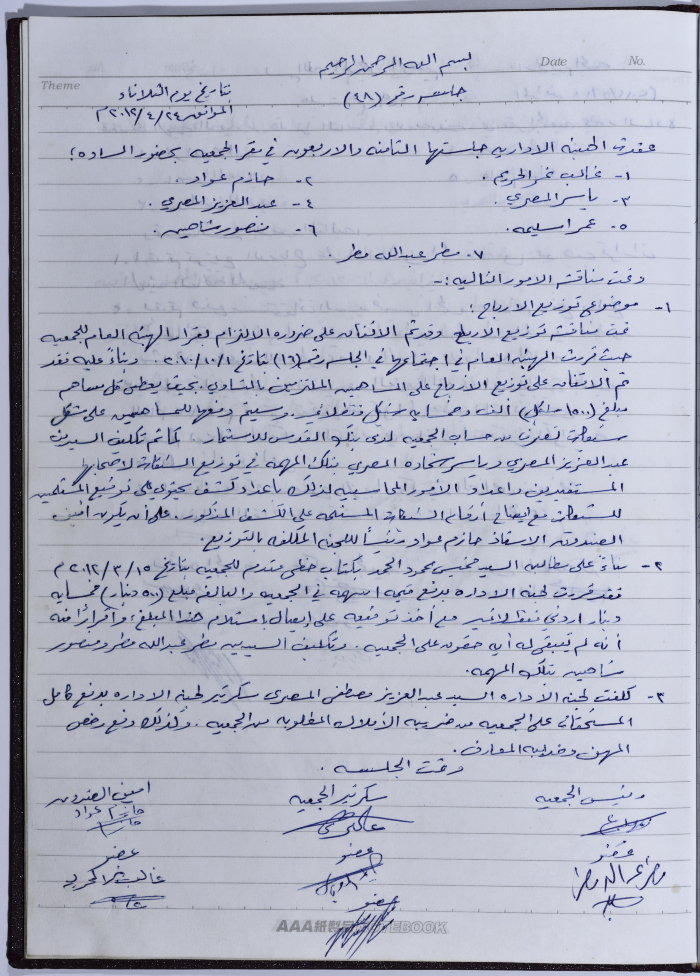 بسم الله الرحمن الرحيم
Date No.
Theme
جلسه رقم (٤٨)
بتاريخ يوم الثلاثاء
الموافق ٢٠١٢/٤/٢٤م
عقدت الهيئة الاداريه جلستها الثامنه والاربعون في مقر الجمعيه بحضور الساده؛
١- غالب نمر الحريم. ٢- حازم عواد.
٣- ياسر المصري. ٤- عبد العزيز المصري.
٥- عمر اسليمه. ٦- منصور شاهين.
٧- مطر عبد الله مطر.
وتمت مناقشه الامور التاليه:-
١- موضوع توزيع الارباح؛
تمت مناقشه توزيع الارباح وقد تم الاتفاق على ضروره الالتزام بقرار الهيئه العامه للجمعيه
حيث قررت الهيئه العامه في اجتماعها في الجلسه رقم (١٦) بتاريخ ٢٠١٠/١٠/١ وبناءً عليه فقد
تم الاتفاق على توزيع الارباح على المساهمين الملتزمين بالتساوي بحيث يعطى كل مساهم
مبلغ (١٥٠٠ شيكل) الف وخمسمايه شيكل فقط لاغير. وسيتم دفعها للمساهمين على شكل
شيكات تصرف من حساب الجمعيه لدى بنك القدس للاستثمار كما تم تكليف السيدين
عبد العزيز المصري وياسر شحاده المصري بتلك المهمه في توزيع الشيكات لاصحابها
المستفيدين واعداد الأمور المحاسبيه لذلك باعداد كشف يحتوي على توقيع المستلمين
للشيكات مع ايضاح أرقام الشيكات المستلمه على الكشف المذكور. على أن يكون أمين
الصندوق الاستاذ حازم عواد رئيسأ للجنه المكلفه بالتوزيع.
٢- بناءً على مطالبه السيد خميس محمود الحمد بكتاب خطي مقدم للجمعيه بتاريخ ٢٠١٢/٣/١٥م
فقد قررت لجنة الاداره بدفع قيمه اسهمه في الجمعيه والبالغه مبلغ (٥٠٠ دينار) خمسمايه
دينار اردني فقط لاغير مع أخذ توقيعه على ايصال باستلام هذا المبلغ، واقراراً منه
أنه لم يتبقى له أيه حقوق على الجمعيه. وتكليف السيدين مطر عبد الله مطر ومنصور
شاهين بتلك المهمه.
٣- كلفت لجنة الاداره السيد عبد العزيز مصطفى المصري سكرتير لجنة الاداره بدفع كامل
المستحقات على الجمعيه من ضريبه الأملاك المطلوبه من الجمعيه. وكذلك دفع رخص
المهن وضريبه المعارف.
وتمت الجلسه.
رئيس الجمعيه سكرتير الجمعيه امين الصندوق
حازم عواد
عضو عضو عضو
مطر عبد الله مطر
عضو
AAA NOTEBOOK